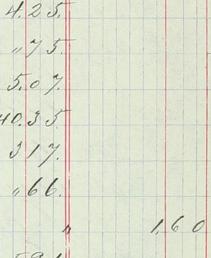 4.25.
"75.
5.07.
40.35
317.
"66.
" 1.60